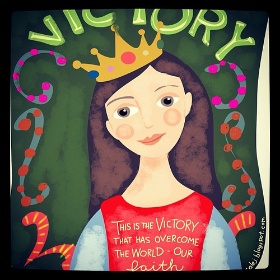 VICTORY
THIS IS THE VICTORY
THAT HAS OVERCOME
THE WORLD - OUR
faith